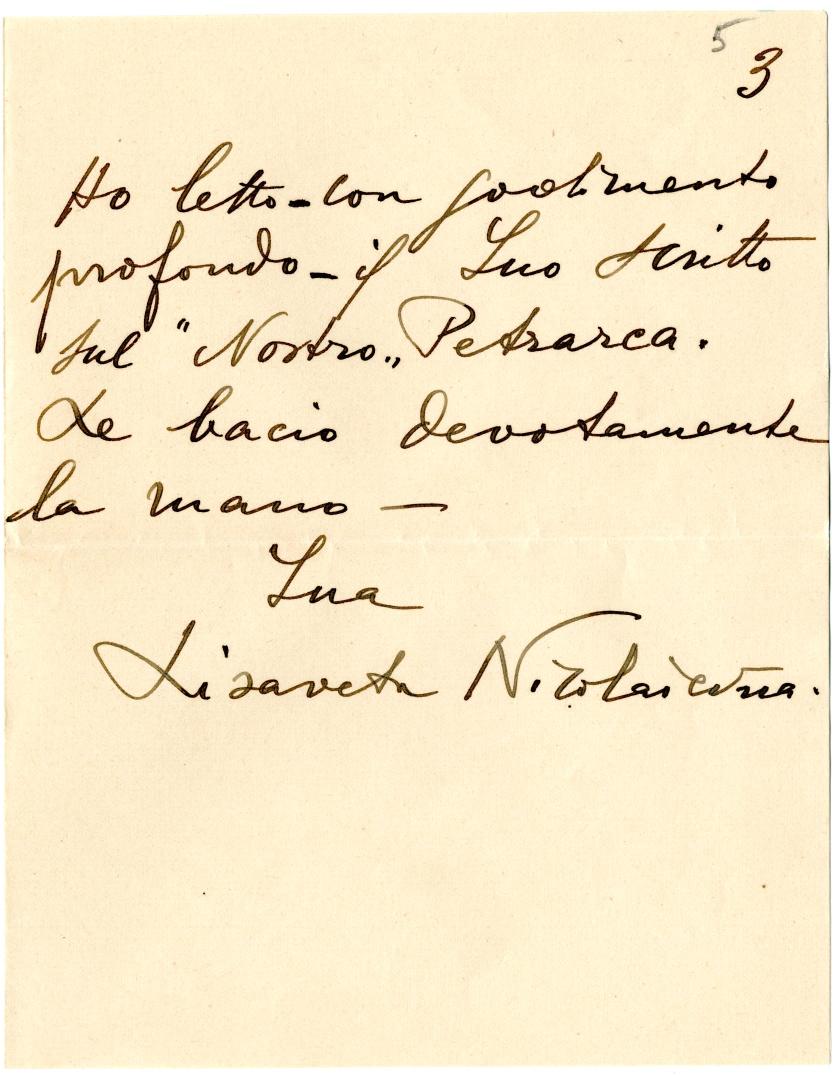 5
3
Ho letto - con godimento
profondo - il Suo scritto
sul "Nostro„ Petrarca.
Le bacio devotamente
la mano —
Sua
Lisaveta